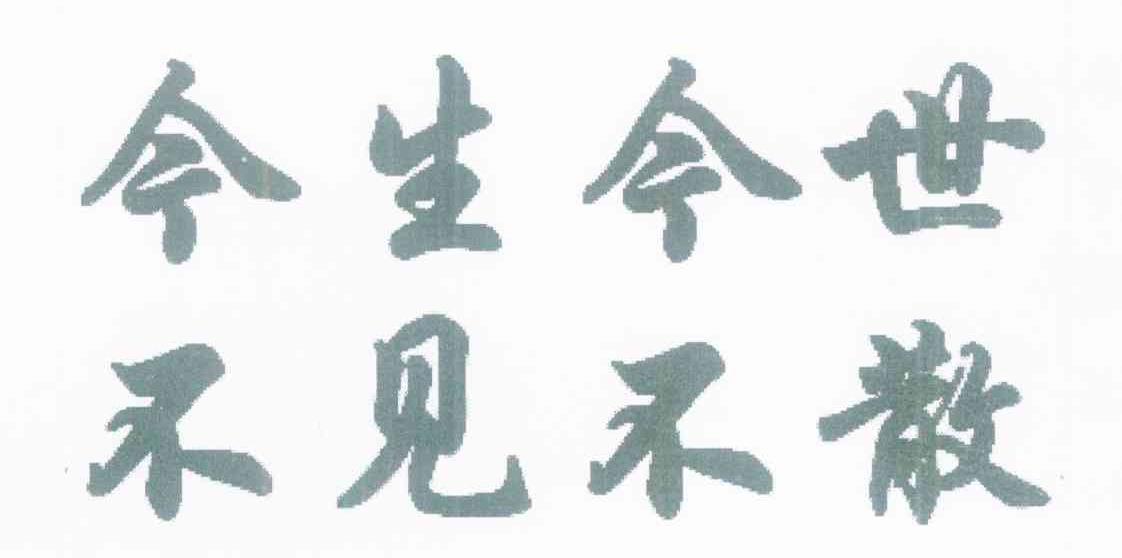 今生今世
不见不散